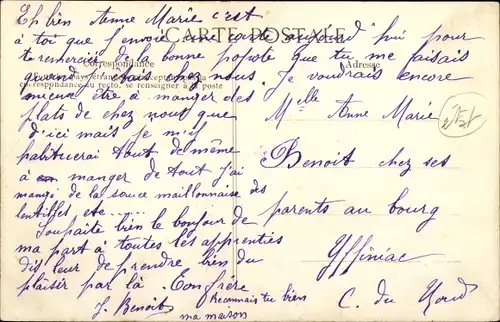 Eh bien Anne Marie c'est
à toi que j'envoie une carte aujourd'hui pour
CARTE POSTALE
te remercier de la bonne popote que tu me faisais
Correspondance
Adresse
quand j'étais chez nous. je voudrais encore
correspondance au recto, se renseigner à la poste
mieux être à manger des
plats de chez nous que
d'ici mais je m'y
habituerai tout de même
à manger de tout j'ai
mangé de la sauce maillonnaise des
lentilles, etc....
Souhaite bien le bonjour de
ma part à toutes les apprenties
dis leur de prendre bien du
plaisir par là. Ton frère
J. Benoit
Reconnais tu bien
ma maison
Melle Anne Marie
Benoit chez ses
parents au bourg
Yffiniac
C. du Nord